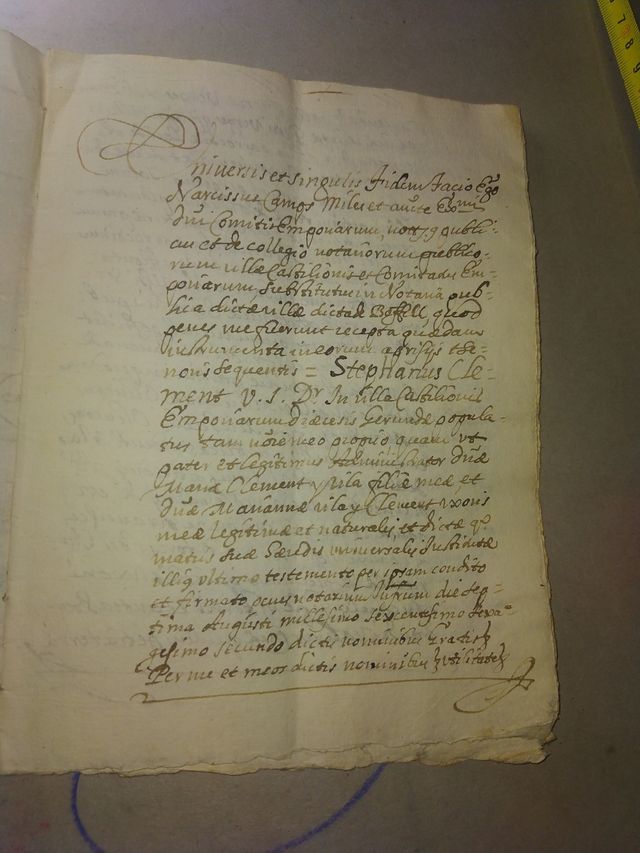 Universis et singulis fidem facio Ego
Narcissus Camps Miles et aucte Exc.mi
Dni Comitis Emporiarum, not.s publi-
cus et de collegio notariorum publico-
rum villæ Castilionis et Comitatus Em-
poriarum substitutus in Notaria pub-
lica dictæ villæ dicta de Boffill, quod
penes me fuerunt recepta quædam
instrumenta in eorum aprisiis the-
noris sequentis = Stephanus Cle-
ment V. I. Dr. In villa Castilionis
Emporiarum diœcesis Gerundæ popula-
tus tam noïe meo proprio quam ut
pater et legitimus Administrator Dnæ
Mariæ Clement y Vila filiæ meæ et
Dnæ Mariannæ Vila y Clement uxoris
meæ legitimæ et naturalis et dictæ q.o
matris suæ hæredis universalis institutæ
illiq ultimo testamento per ipsam condito
et firmato penes notarium infrum die sep-
tima Augusti millesimo sexcentesimo sexa-
gesimo secundo dictis nominibus Gratis &
Per me et meos dictis nominibus & utilitate &